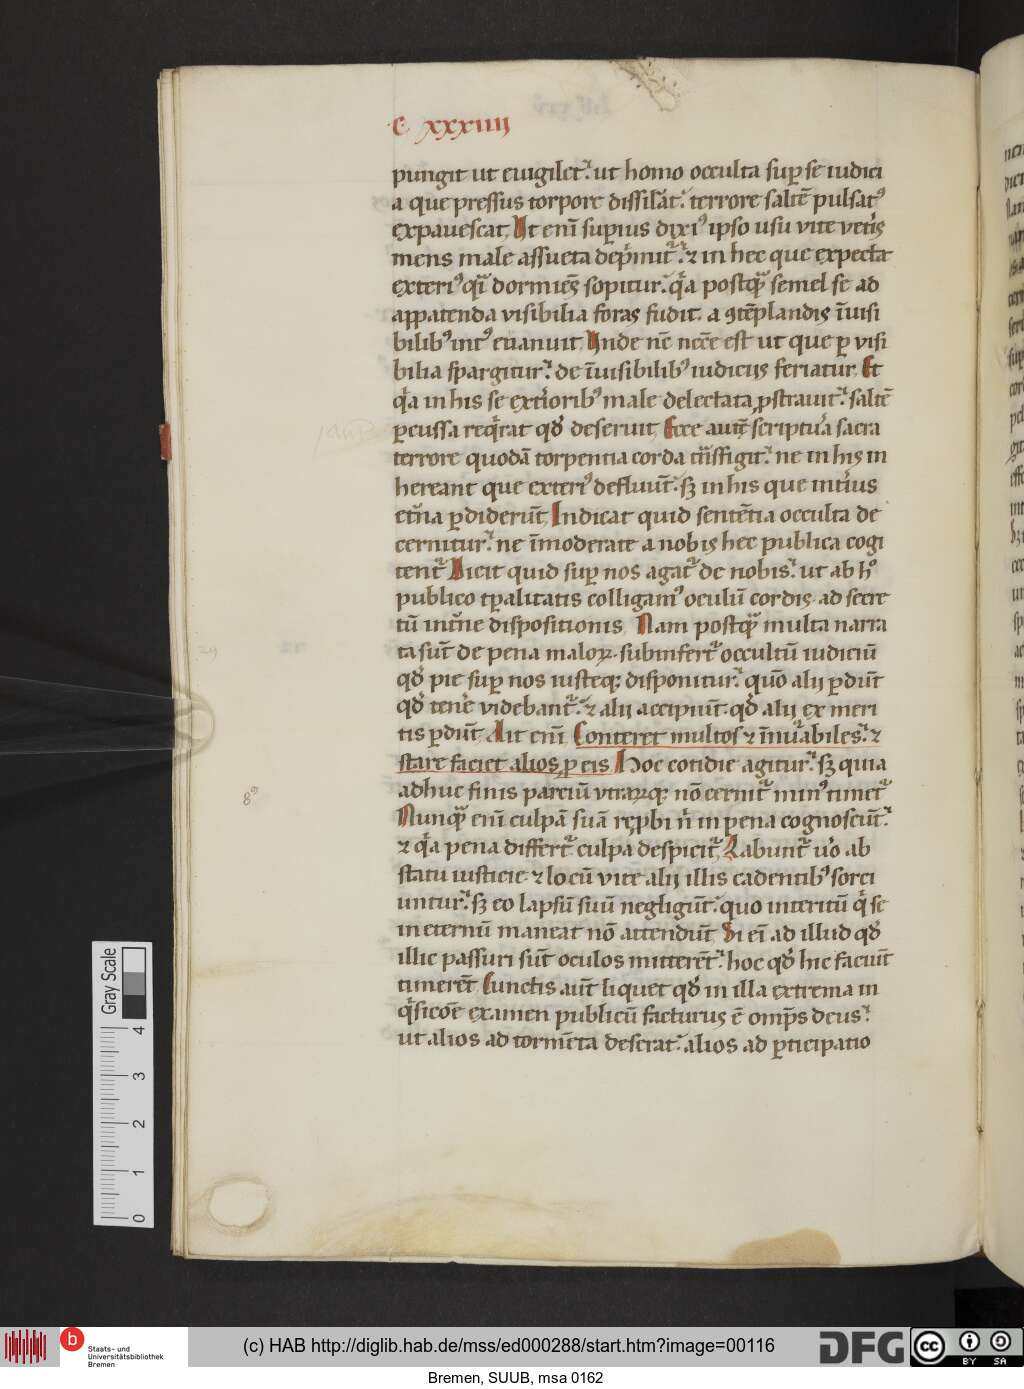 C xxxiiii
pungit ut euigilet. ut homo occulta sup̱ se iudici
a que pressus torpore dissilat̃. terrore saltē pulsatꝰ
expauescat. Vt eni᷒ sup̱ius dixiꝰ ipso usu uite ueteris
mens male assueta dep̃mitᷣ. ⁊ in hec que expectat
exteriꝰ qͣi dormiens sopitur. qͥa postqͣ̄ semel se ad
appatenda visibilia foras fudit. a ꝯtēplandis īuisi
bilibꝰ intꝰ euanuit. Vnde nc̄ necc̄e est ut que ꝑ visi
bilia spargitur. de īuisibilibꝰ iudiciis feriatur. Et
qͥa in his se extͥoribꝰ male delectata ꝓstrauit. saltē
ꝑcussa reqͥrat qd̕ deseruit. Ecce autē scriptuͣa sacra
terrore quodā torpentia corda tͣnsfigit. ne in his in
hereant que exteriꝰ defluūt. sꝫ in his que intͥus
etͨna ꝑdiderūt. Indicat quid sentētia occulta de
cernitur. ne īmoderate a nobis hec publica cogi
tentᷣ. Dicit quid sup̱ nos agatᷣ de nobis. ut ab hͦ
publico tꝑalitatis colligamꝰ oculū cordis ad secre
tū intͨne dispositionis. Nam postqͣ̄ multa narra
ta sūt de pena maloꝝ. subinfertᷣ occultū iudiciū
qd̕ pie sup̱ nos iusteqꝫ disponitur. quō alii ꝑdūt
qd̕ tenͨe videbantᷣ. ⁊ alii accipiūt qd̕ alii ex meri
tis ꝑdūt. Ait eni᷒. Conteret multos ⁊ īnuͣabiles. ⁊
stare faciet alios ꝓ eis. Hoc cotidie agitur. sꝫ quia
adhuc finis parciū vtraꝝqꝫ nō cernitᷣ minꝰ timetᷣ.
8ꝰ
Nunqͣ̄ eni᷒ culpā suā reꝓbi n̄ in pena cognoscūt.
⁊ qͥa pena differtᷣ culpa despicitᷣ. Labuntᷣ uͦo ab
statu iusticie ⁊ locū vite alii illis cadentibꝰ sorci
untur. sꝫ eo lapsū suū negligūt. quo interitū qͥ se
in eternū maneat nō attendūt. Si ei᷒ ad illud qd̕
illic passuri sūt oculos mitterēt. hoc qd̕ hic faciūt
timerēt. Cunctis aūt liquet qd̕ in illa extrema in
qͥsicōe examen publicū facturus ē omp̄s deus.
ut alios ad tormēta deserat. alios ad ꝑticipatio
Gray Scale
4
3
2
1
0
b
Staats- und
Universitätsbibliothek
Bremen
(c) HAB http://diglib.hab.de/mss/ed000288/start.htm?image=00116
DFG
CC BY SA
Bremen, SUUB, msa 0162